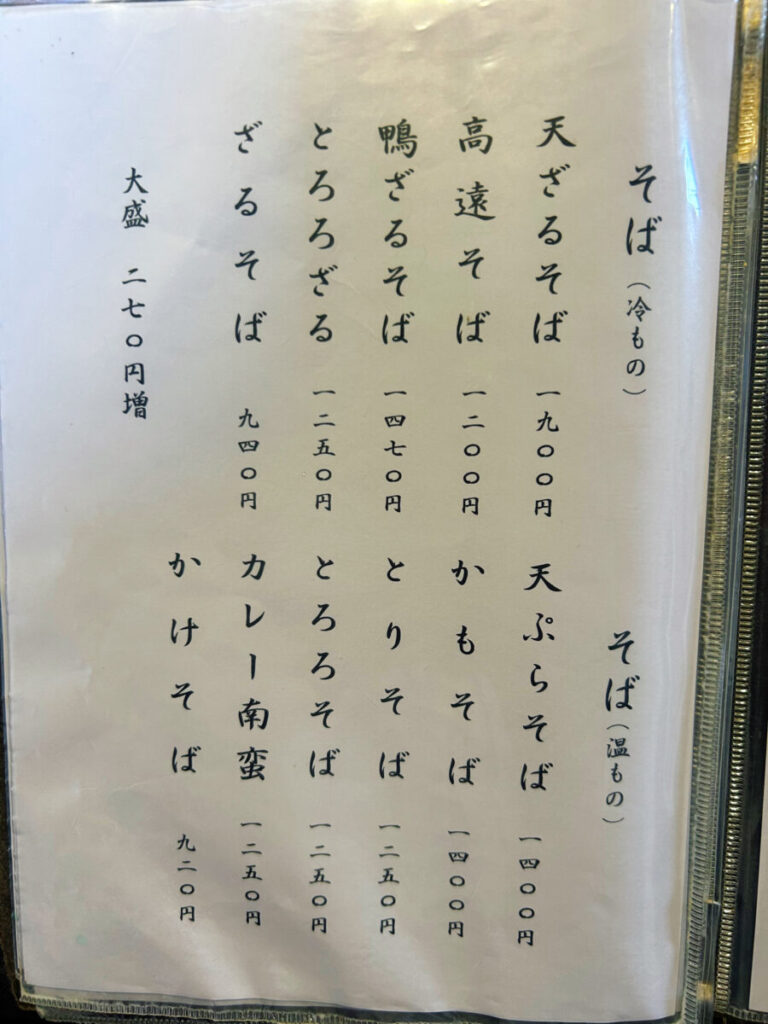 そば（冷もの）
天ざるそば 一九〇〇円
高遠そば 一二〇〇円
鴨ざるそば 一四七〇円
とろろざる 一二五〇円
ざるそば 九四〇円
大盛 二七〇円増
そば（温もの）
天ぷらそば 一四〇〇円
かもそば 一四〇〇円
とりそば 一二五〇円
とろろそば 一二五〇円
カレー南蛮 一二五〇円
かけそば 九二〇円